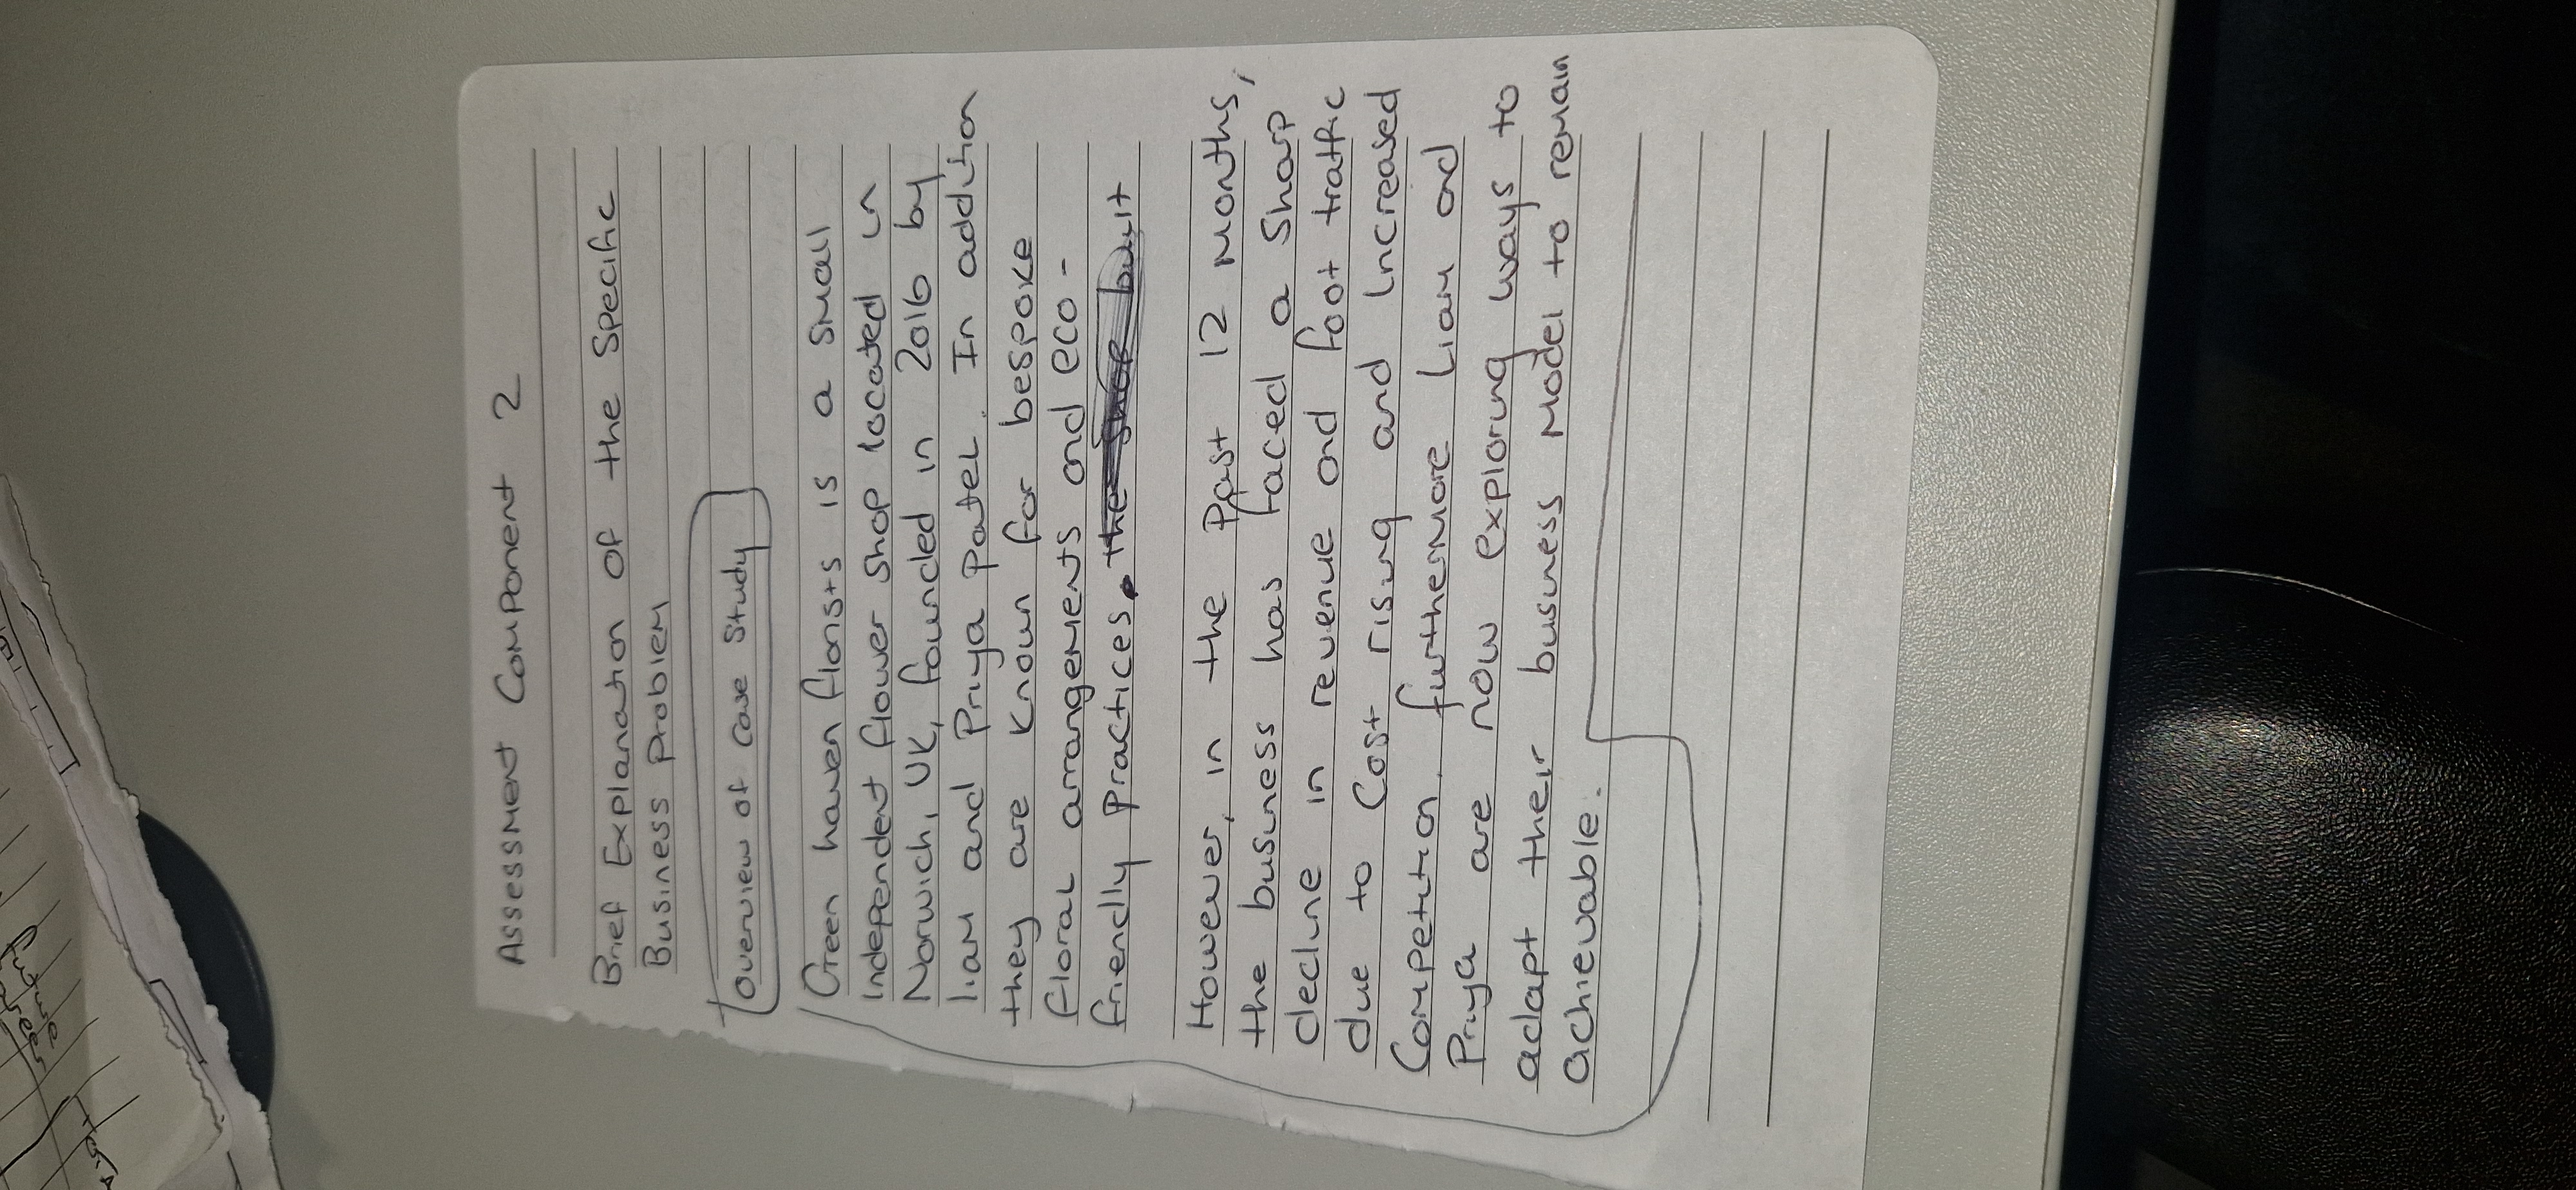 Assessment Component 2
Brief Explanation of the Specific
Business Problem
Overview of Case Study
Green haven florists is a small
Independent flower shop located in
Norwich, UK, founded in 2016 by
liam and Priya Patel. In addition
they are known for bespoke
floral arrangements and eco-
friendly practices. the shop built
However, in the Past 12 Months,
the business has faced a sharp
decline in revenue and foot traffic
due to Cost rising and increased
Competition. furthermore Liam and
Priya are now exploring ways to
adapt their business model to remain
achievable.
future